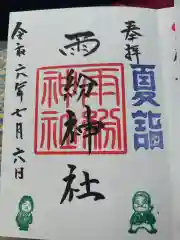 奉拝
夏詣
雨紛神社
雨紛
神社
令和六年七月六日